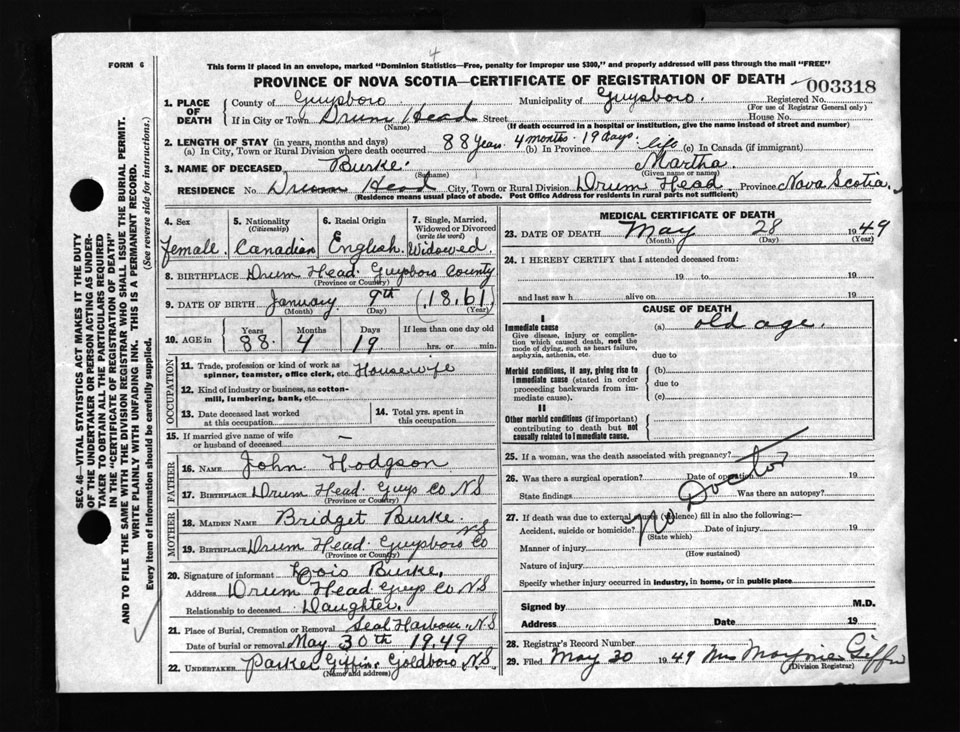 4
FORM 6
This form if placed in an envelope, marked "Dominion Statistics—Free, penalty for improper use $300," and properly addressed will pass through the mail "FREE"
PROVINCE OF NOVA SCOTIA—CERTIFICATE OF REGISTRATION OF DEATH
003318
1. PLACE OF DEATH County of Guysboro Municipality of Guysboro. Registered No. (For use of Registrar General only)
If in City or Town Drum Head Street House No.
(Name) (If death occurred in a hospital or institution, give the name instead of street and number)
2. LENGTH OF STAY (in years, months and days)
(a) In City, Town or Rural Division where death occurred 88 Years 4 months 19 days (b) In Province life (c) In Canada (if immigrant)
3. NAME OF DECEASED Burke. Martha.
(Surname) (Given name or names)
RESIDENCE No. Drum Head City, Town or Rural Division Drum Head. Province Nova Scotia.
(Residence means usual place of abode. Post Office Address for residents in rural parts not sufficient)
4. Sex Female.
5. Nationality (Citizenship) Canadian
6. Racial Origin English.
7. Single, Married, Widowed or Divorced (write the word) Widowed.
8. BIRTHPLACE Drum Head Guysboro County
(Province or Country)
9. DATE OF BIRTH January 9th (1861)
(Month) (Day) (Year)
10. AGE in Years Months Days If less than one day old
88. 4 19 hrs. or min.
OCCUPATION
11. Trade, profession or kind of work as spinner, teamster, office clerk, etc. Housewife
12. Kind of industry or business, as cotton-mill, lumbering, bank, etc.
13. Date deceased last worked at this occupation
14. Total yrs. spent in this occupation
15. If married give name of wife or husband of deceased —
FATHER
16. NAME John Hodgson
17. BIRTHPLACE Drum Head Guys Co NS
(Province or Country)
MOTHER
18. MAIDEN NAME Bridget Burke.
19. BIRTHPLACE Drum Head. Guysboro Co NS
(Province or Country)
20. Signature of informant Lois Burke,
Address Drum Head Guys Co NS
Relationship to deceased Daughter.
21. Place of Burial, Cremation or Removal Seal Harbour. NS
Date of burial or removal May 30th 1949
22. UNDERTAKER Parker Giffin, Goldboro, NS
(Name and address)
MEDICAL CERTIFICATE OF DEATH
23. DATE OF DEATH May 28 1949
(Month) (Day) (Year)
24. I HEREBY CERTIFY that I attended deceased from:
19 to 19
and last saw h alive on 19
CAUSE OF DEATH
I
Immediate cause (a) old age.
Give disease, injury or complication which caused death, not the mode of dying, such as heart failure, asphyxia, asthenia, etc.
due to
Morbid conditions, if any, giving rise to immediate cause (stated in order proceeding backwards from immediate cause).
(b)
due to
(c)
II
Other morbid conditions (if important) contributing to death but not causally related to immediate cause.
25. If a woman, was the death associated with pregnancy?
26. Was there a surgical operation? Date of operation 19
State findings Was there an autopsy?
No Doctor
27. If death was due to external causes (violence) fill in also the following:—
Accident, suicide or homicide? Date of injury 19
(State which)
Manner of injury
(How sustained)
Nature of injury
Specify whether injury occurred in industry, in home, or in public place
Signed by M.D.
Address Date 19
28. Registrar's Record Number
29. Filed May 30 1949 Mrs Marjorie Giffin
(Division Registrar)
SEC. 46—VITAL STATISTICS ACT MAKES IT THE DUTY
OF THE UNDERTAKER OR PERSON ACTING AS UNDER-
TAKER TO OBTAIN ALL THE PARTICULARS REQUIRED
IN THE "CERTIFICATE OF REGISTRATION OF DEATH"
AND TO FILE THE SAME WITH THE DIVISION REGISTRAR WHO SHALL ISSUE THE BURIAL PERMIT.
WRITE PLAINLY WITH UNFADING INK. THIS IS A PERMANENT RECORD.
Every item of information should be carefully supplied. (See reverse side for instructions.)